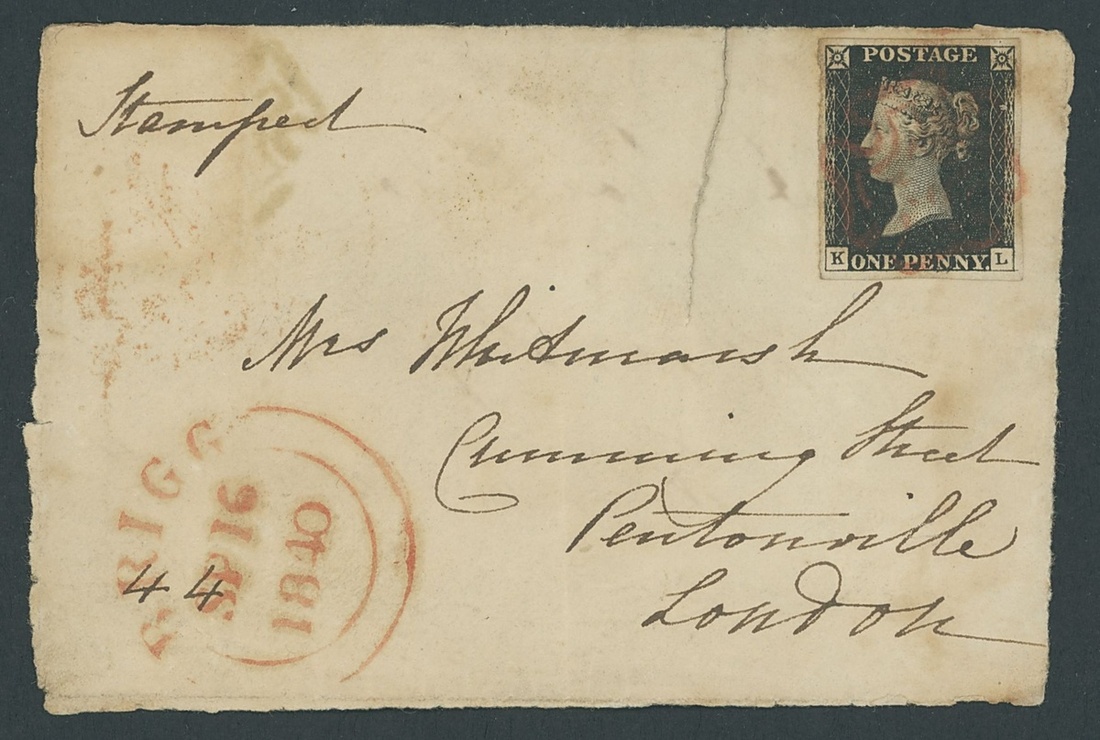 Stamped
POSTAGE
K ONE PENNY. L
Mrs Whitmarsh
Cumming Street
Pentonville
London
BRIGG
SP 16
1840
44